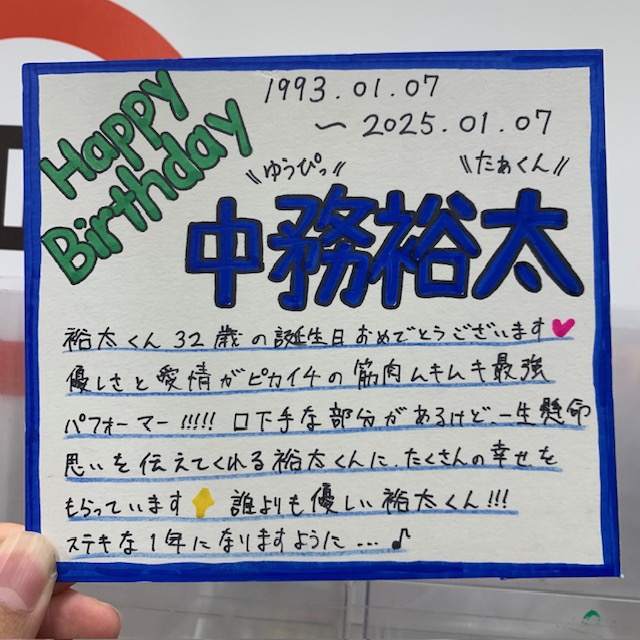 Happy
Birthday
1993.01.07
〜2025.01.07
《ゆうぴっ》
《たぁくん》
中務裕太
裕太くん32歳の誕生日おめでとうございます♥
優しさと愛情がピカイチの筋肉ムキムキ最強
パフォーマー!!!!! 口下手な部分があるけど、一生懸命
思いを伝えてくれる裕太くんに、たくさんの幸せを
もらっています 誰よりも優しい裕太くん!!!
ステキな1年になりますように...♪